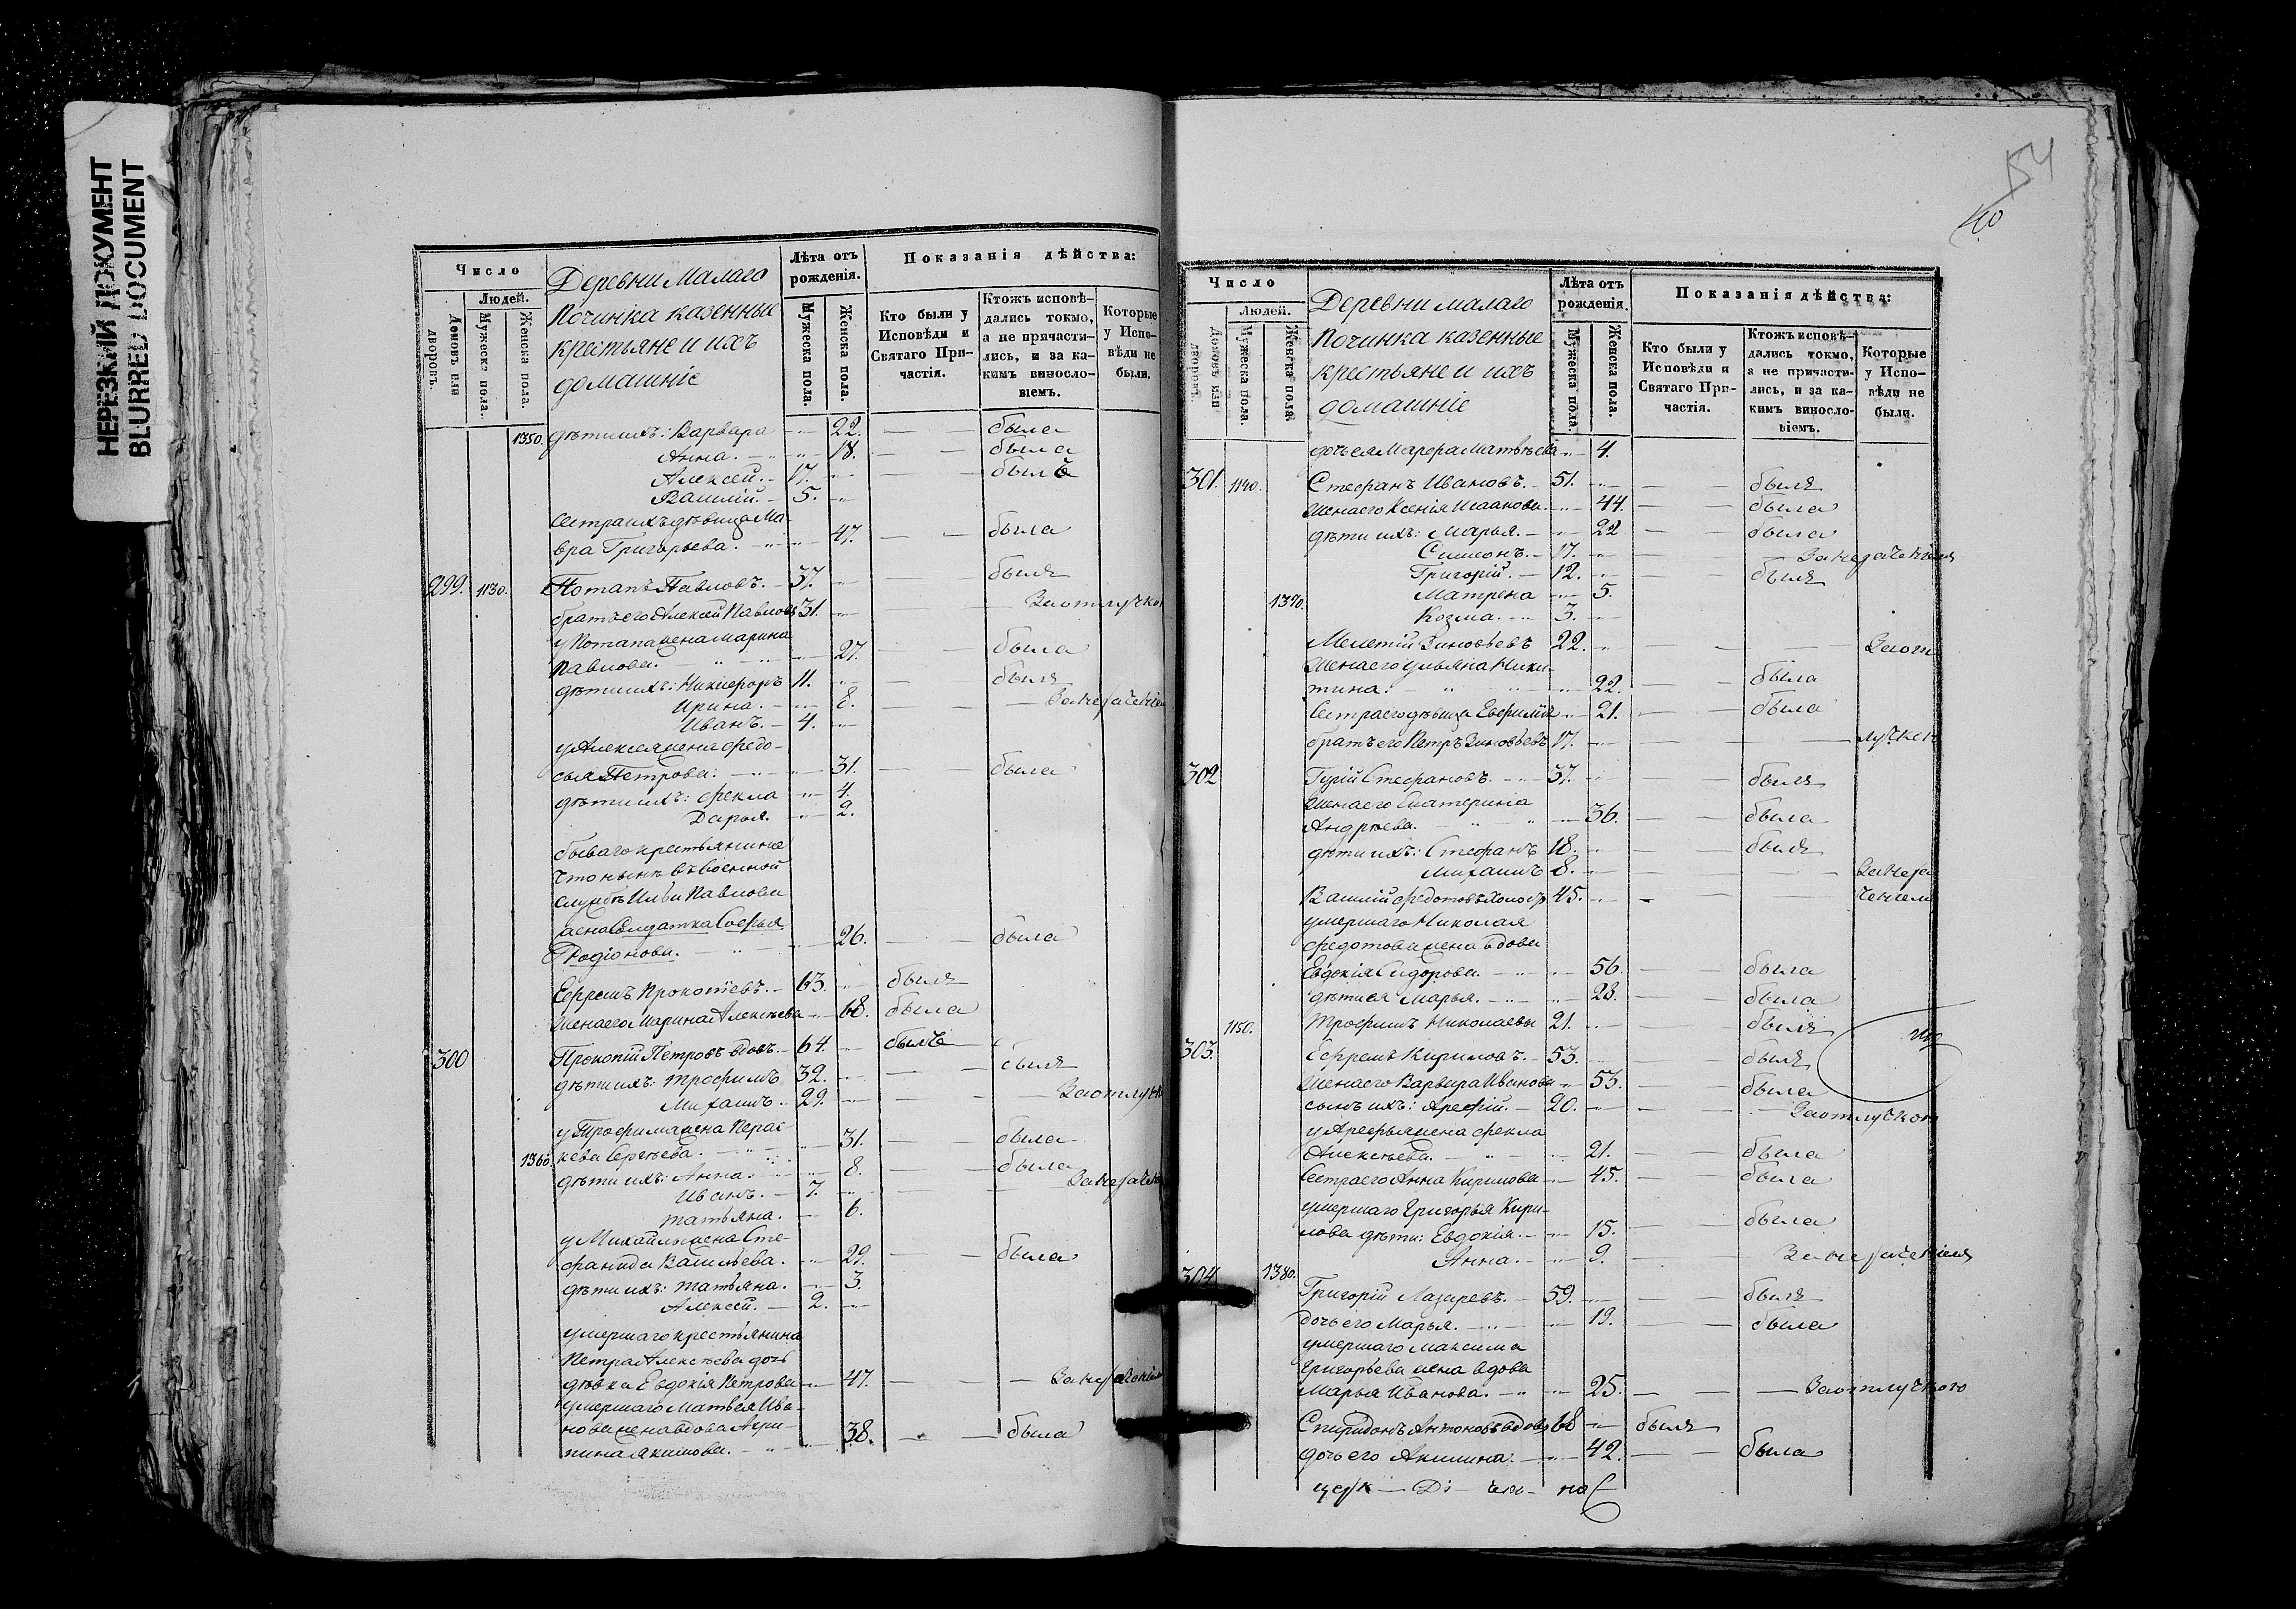 НЕРЕЗКИЙ ДОКУМЕНТ
BLURRED DOCUMENT
Число
Людей.
Домовъ или дворовъ.
Мужеска пола.
Женска пола.
Деревни Малаго
Починка казенныи
крестьяне и ихъ
домашніе
Лѣта отъ рожденія.
Мужеска пола.
Женска пола.
Показанія дѣйства:
Кто были у Исповѣди и Святаго Причастія.
Ктожъ исповѣдались токмо, а не причастились, и за какимъ винословіемъ.
Которые у Исповѣди не были.
1350. дѣти ихъ: Варвара 22. была
Анна. 18. была
Алексѣй. 17. былъ
Василій. 5.
Сестра ихъ дѣвица Ма-
вра Григорьева. 47. была
299. 1130. Потапъ Павловъ. 37. былъ
братъ его Алексѣй Павловъ 31. За отлучкою
у Потапа жена Марина
Павлова. 27. была
дѣти ихъ: Никифоръ 11. былъ
Ирина. 8. За нераченіем
Иванъ. 4.
у Алексея жена Федо-
сья Петрова. 31. была
дѣти ихъ: Фекла 4.
Дарья. 2.
бываго крестьянина
что нынѣ въ военной
службѣ Ильи Павлова
жена Солдатка Софья
Родіонова. 26. была
Ефремъ Прокопіевъ. 63. былъ
Жена его Марина Алексѣева 68. была
300 Прокопій Петровъ вдовъ. 64. былъ
дѣти ихъ: Трофимъ 32. былъ
Михаилъ. 29. За отлучко
у Трофима жена Парас-
кева Сергѣева. 31. была
1360. дѣти ихъ: Анна. 8. была
Иванъ. 7. За нерачен
Татьяна. 6.
у Михайлы жена Сте-
фанида Васильева. 29. была
дѣти ихъ: Татьяна. 3.
Алексѣй. 2.
умершаго крестьянина
Петра Алексѣева дочь
дѣвка Евдокія Петрова 47. За нераченіем
умершаго Матвея Ива-
нова жена вдова Агри-
пина Якимова. 38. была
54
40
Число
Людей.
Домовъ или дворовъ.
Мужеска пола.
Женска пола.
Деревни малаго
Починка казенные
крестьяне и ихъ
домашніе
Лѣта отъ рожденія.
Мужеска пола.
Женска пола.
Показанія дѣйства:
Кто были у Исповѣди и Святаго Причастія.
Ктожъ исповѣдались токмо, а не причастились, и за какимъ винословіемъ.
Которые у Исповѣди не были.
дочь ея Марфа Матвѣева 4.
301. 1140. Стефанъ Ивановъ. 51. былъ
Жена его Ксенія Исаакова. 44. была
дѣти ихъ: Марья. 22 была
Симеонъ. 17. За нераченіем
Григорій. 12. былъ
1370. Матрена 5.
Козма. 3.
Мелетій Зиновьевъ 22. За от
Жена его Ульяна Ники-
тина. 22. была
Сестра его дѣвица Евфимія 21. была
братъ его Петръ Зиновьевъ 17. лучкою
302 Гурій Стефановъ. 37. былъ
Жена его Екатерина
Андрѣева. 36. была
дѣти ихъ: Стефанъ 18. былъ
Михаилъ 8. За нера
Василій Федотовъ холостъ 45. ченіем
умершаго Николая
Федотова жена вдова
Евдокія Сидорова. 56. была
дѣти ея Марья. 28. была
1150. Трофимъ Николаевъ 21. былъ
303. Ефремъ Кириловъ. 53. былъ
Жена его Варвара Иванова 53. была
сынъ ихъ: Арефій. 20. За отлучкою
у Арефья жена Фекла
Алексѣева. 21. была
Сестра его Анна Кирилова 45. была
умершаго Григорья Кири-
лова дѣти: Евдокія. 15. была
Анна. 9. За нераченіем
304 1380. Григорій Лазаревъ. 59. былъ
дочь его Марья. 19. была
умершаго Максима
Григорьева жена вдова
Марья Иванова. 25. За отлучкою
Спиридонъ Антоновъ вдовъ 68 былъ
дочь его Акилина. 42. была